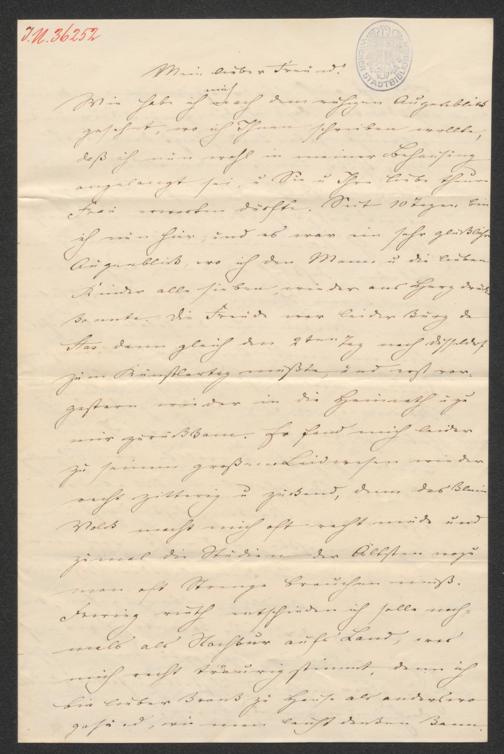 J.N. 36252
STADTBIBL
Mein lieber Freund!
Wie habe ich mich nach dem ruhigen Augenblick
gesehnt, wo ich Ihnen schreiben wollte,
daß ich nun wohl in meiner Behausung
angelangt sei, u Sie u Ihre liebe theure
Frau erwarten dürfte. Seit 10 Tagen bin
ich nun hier, und es war ein sehr glücklicher
Augenblick, wo ich den Mann u die lieben
Kinder alle sieben, wieder ans Herz drücken
konnte. Die Freude war leider kurz da
denn gleich den 2ten Tag nach Düsseldorf
zum Künstlertag mußte, und erst vor-
gestern wieder in die Heimath u zu
mir zurückkam. Er fand mich leider
zu seinem großen Leidwesen wieder
recht zitterig u zuckend, denn das kleine
Volk macht mich oft recht müde und
zumal die Studien der Ältsten wozu
man oft Strenge brauchen muß.
räth entschieden ich solle noch-
mals als aufs Land, was
mich recht traurig stimmt, denn ich
bin lieber krank zu Hause als anderswo
gesund, wie man leicht denken kann.